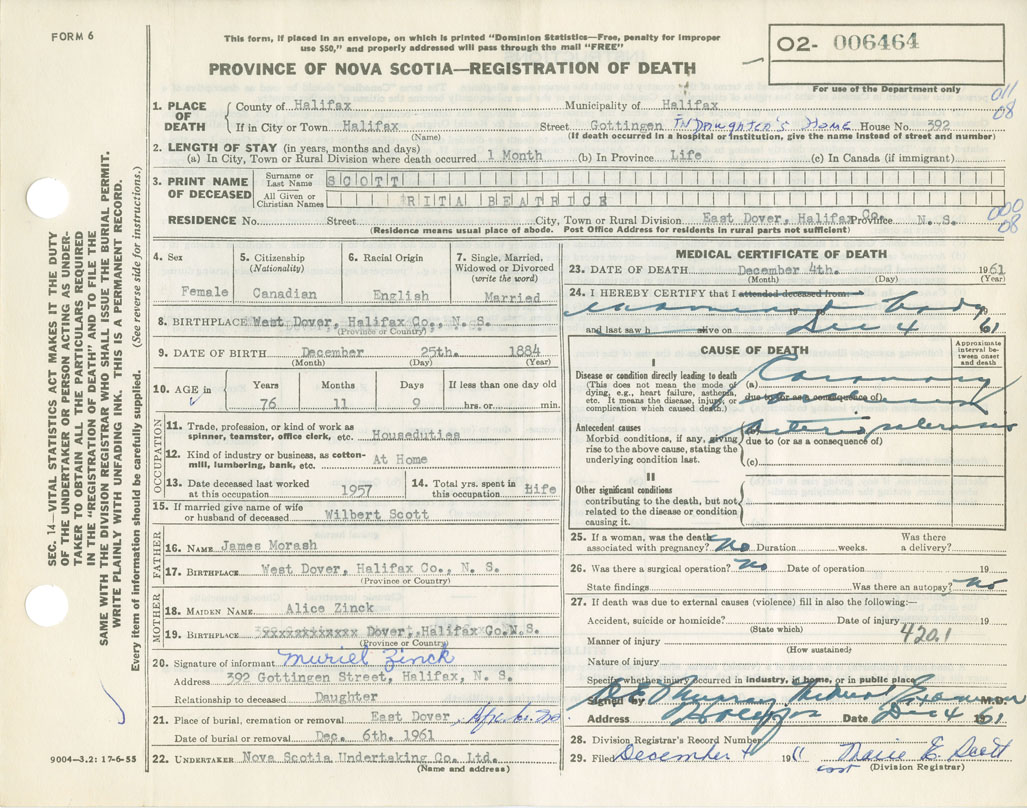 FORM 6
This form, if placed in an envelope, on which is printed "Dominion Statistics—Free, penalty for improper
use $50," and properly addressed will pass through the mail "FREE"
PROVINCE OF NOVA SCOTIA—REGISTRATION OF DEATH
02- 006464
For use of the Department only
011
08
1. PLACE OF DEATH County of Halifax Municipality of Halifax
If in City or Town Halifax (Name) Street Gottingen IN Daughter's Home House No. 392
(If death occurred in a hospital or institution, give the name instead of street and number)
2. LENGTH OF STAY (in years, months and days)
(a) In City, Town or Rural Division where death occurred 1 Month (b) In Province Life (c) In Canada (if immigrant)
3. PRINT NAME OF DECEASED Surname or Last Name SCOTT
All Given or Christian Names RITA BEATRICE
000
08
RESIDENCE No. Street City, Town or Rural Division East Dover, Halifax Co. Province N. S.
(Residence means usual place of abode. Post Office Address for residents in rural parts not sufficient)
4. Sex Female
5. Citizenship (Nationality) Canadian
6. Racial Origin English
7. Single, Married, Widowed or Divorced (write the word) Married
8. BIRTHPLACE West Dover, Halifax Co., N. S.
(Province or Country)
9. DATE OF BIRTH December 25th. 1884
(Month) (Day) (Year)
10. AGE in Years Months Days If less than one day old
76 11 9 hrs. or min.
OCCUPATION
11. Trade, profession, or kind of work as spinner, teamster, office clerk, etc. Houseduties
12. Kind of industry or business, as cotton-mill, lumbering, bank, etc. At Home
13. Date deceased last worked at this occupation 1957
14. Total yrs. spent in this occupation Life
15. If married give name of wife or husband of deceased Wilbert Scott
FATHER
16. NAME James Morash
17. BIRTHPLACE West Dover, Halifax Co., N. S.
(Province or Country)
MOTHER
18. MAIDEN NAME Alice Zinck
19. BIRTHPLACE xxxxxxxxxxxx Dover, Halifax Co. N.S.
(Province or Country)
20. Signature of informant Muriel Zinck
Address 392 Gottingen Street, Halifax, N. S.
Relationship to deceased Daughter
21. Place of burial, cremation or removal East Dover, Hfx. Co. N.S.
Date of burial or removal Dec. 6th. 1961
22. UNDERTAKER Nova Scotia Undertaking Co. Ltd.
(Name and address)
MEDICAL CERTIFICATE OF DEATH
23. DATE OF DEATH December 4th. 1961
(Month) (Day) (Year)
24. I HEREBY CERTIFY that I attended deceased from
body 19
and last saw h alive on Dec 4 1961
CAUSE OF DEATH
Approximate interval between onset and death
I
Disease or condition directly leading to death
(This does not mean the mode of dying, e.g., heart failure, asthenia, etc. It means the disease, injury, or complication which caused death.)
(a) Coronary
due to (or as a consequence of)
Antecedent causes
Morbid conditions, if any, giving rise to the above cause, stating the underlying condition last.
(b) Arteriosclerosis
due to (or as a consequence of)
(c)
II
Other significant conditions
contributing to the death, but not related to the disease or condition causing it.
25. If a woman, was the death associated with pregnancy? No Duration weeks. Was there a delivery?
26. Was there a surgical operation? No Date of operation 19
State findings Was there an autopsy? No
27. If death was due to external causes (violence) fill in also the following:—
Accident, suicide or homicide? Date of injury 19
(State which)
420.1
Manner of injury
(How sustained)
Nature of injury
Specify whether injury occurred in industry, in home, or in public place
Signed by Murray Medical Examiner M.D.
Address Halifax Date Dec 4 1961
28. Division Registrar's Record Number
29. Filed December 4 1961 Marie E Scott
(Division Registrar)
SEC. 14—VITAL STATISTICS ACT MAKES IT THE DUTY
OF THE UNDERTAKER OR PERSON ACTING AS UNDER-
TAKER TO OBTAIN ALL THE PARTICULARS REQUIRED
IN THE "REGISTRATION OF DEATH" AND TO FILE THE
SAME WITH THE DIVISION REGISTRAR WHO SHALL ISSUE THE BURIAL PERMIT.
WRITE PLAINLY WITH UNFADING INK. THIS IS A PERMANENT RECORD.
Every item of information should be carefully supplied. (See reverse side for instructions.)
9004—3.2: 17-6-55